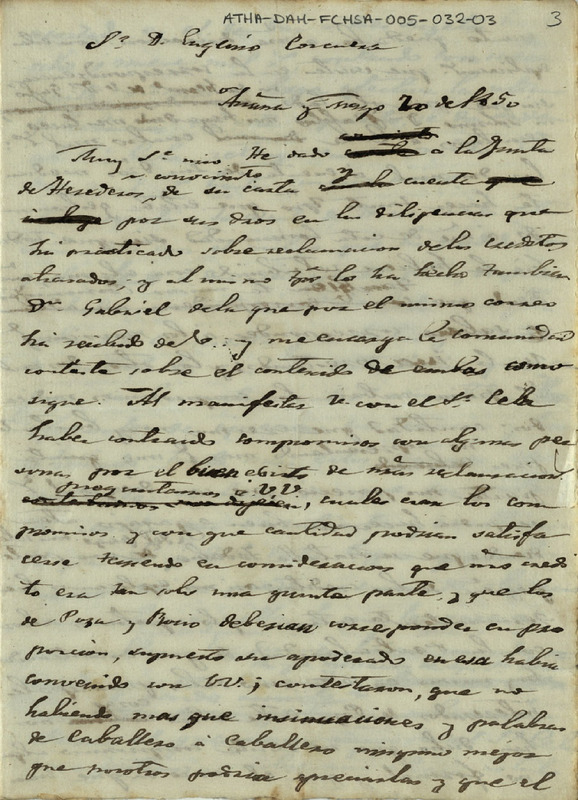 ATHA-DAH-FCHSA-005-032-03
3
Sr. D. Eugenio Corcuera
Añana y Mayo 20 de 1850
Muy Sr. mio He dado a la Junta
conocimiento
de Herederos de su carta y cuenta
por sus dros en las diligencias que
ha practicado sobre reclamacion de los creditos
atrasados, y al mismo tpo. los ha hecho tambien
Dn. Gabriel de la que por el mismo correo
ha recibido de V. y me encarga la comunidad
conteste sobre el contenido de ambas como
sigue. Al manifestar V. con el Sr. Cela
haber contraido compromisos con algunas per
sonas por el buen exito de nras reclamacion
preguntamos á VV
, cuales eran los com
promisos y con que cantidad podrian satisfa
cerse teniendo en consideracion que nro credi
to era tan solo una quinta parte, y que los
de Poza y Rosio deberian corresponder en pro
porcion, supuesto su apoderado en esa habia
convenido con VV.; contestaron, que no
habiendo mas que insinuaciones y palabras
de Caballero á Caballero ninguno mejor
que nosotros podria apreciarlas y que el